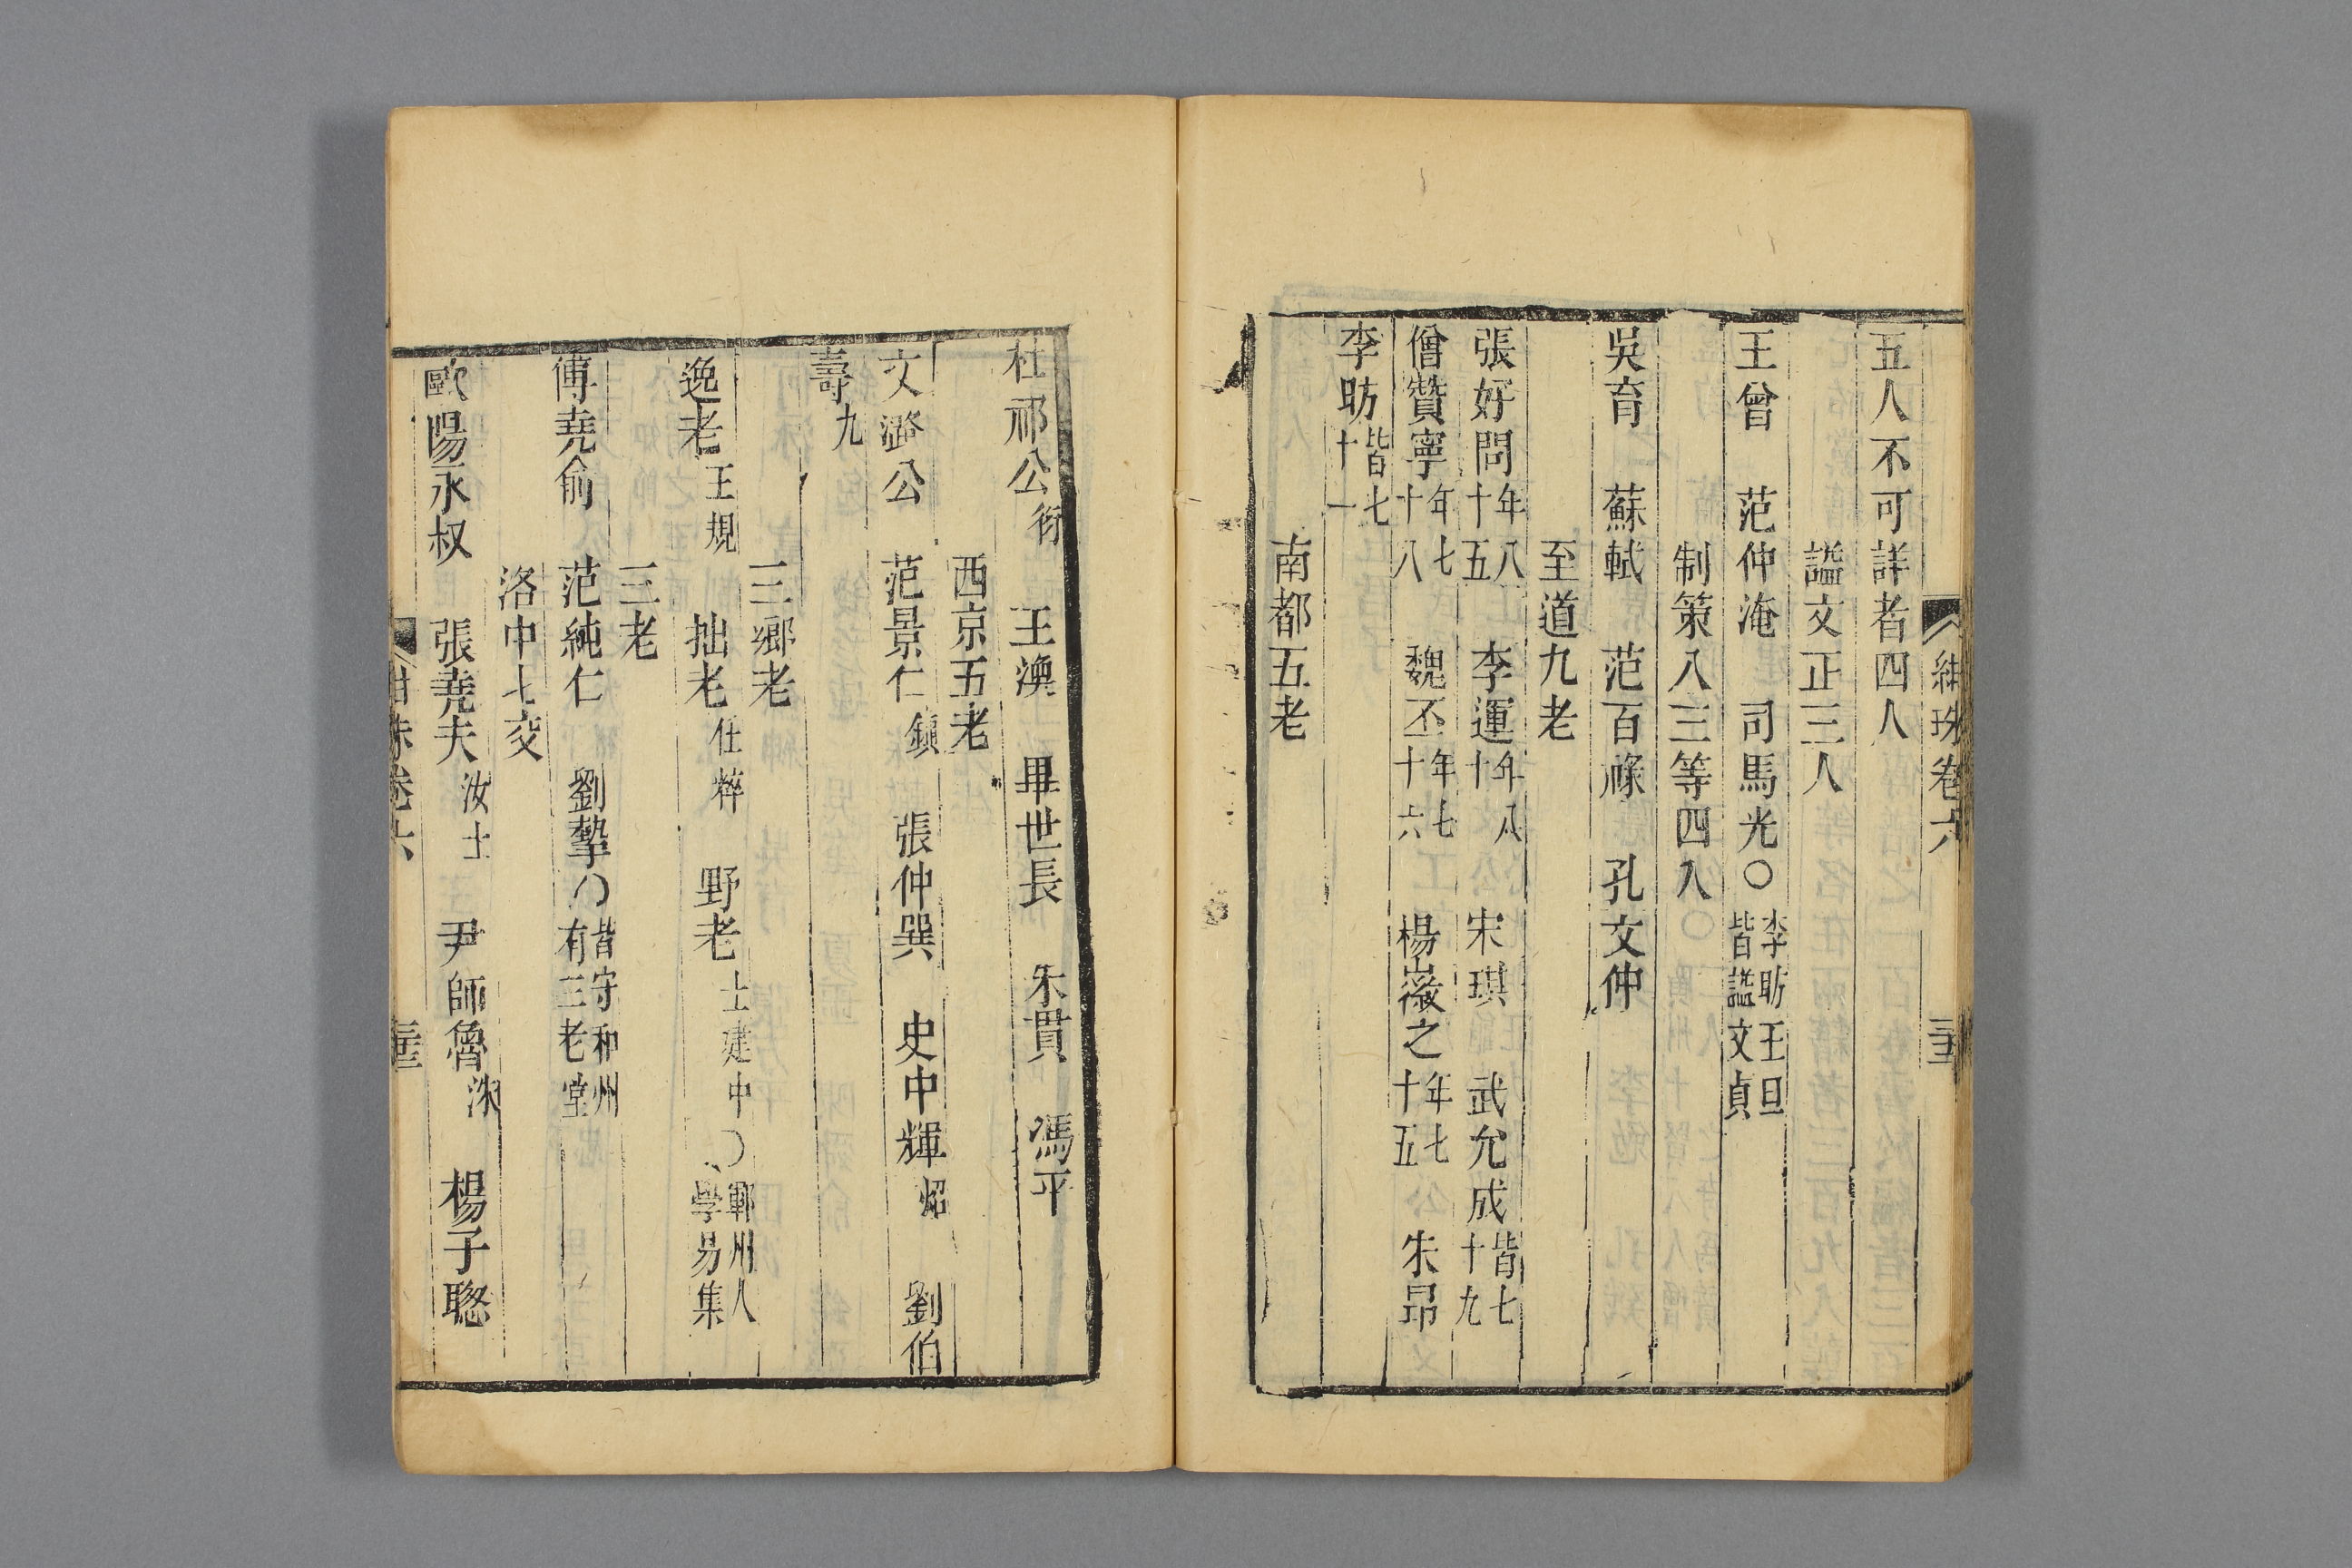 紺珠卷六
五人不可詳者四人
謚文正三人
王曾　范仲淹　司馬光○李昉王旦皆謚文貞
制策入三等四人
吳育　蘇軾　范百祿　孔文仲
至道九老
張好問年八十五　李運年八十　宋琪　武允成皆七十九
僧贊寧年七十八　魏丕年七十六　楊徽之年七十五　朱昂
李昉皆七十一
南都五老
杜祁公衍　王渙　畢世長　朱貫　馮平
西京五老
文潞公　范景仁鎮　張仲巽　史中輝炤　劉伯
壽九
三鄉老
逸老王規　拙老任粹　野老士建中○鄆州人學易集
三老
傅堯俞　范純仁　劉摯○皆守和州有三老堂
洛中七交
歐陽永叔　張堯夫汝士　尹師魯洙　楊子聦
紺珠卷六